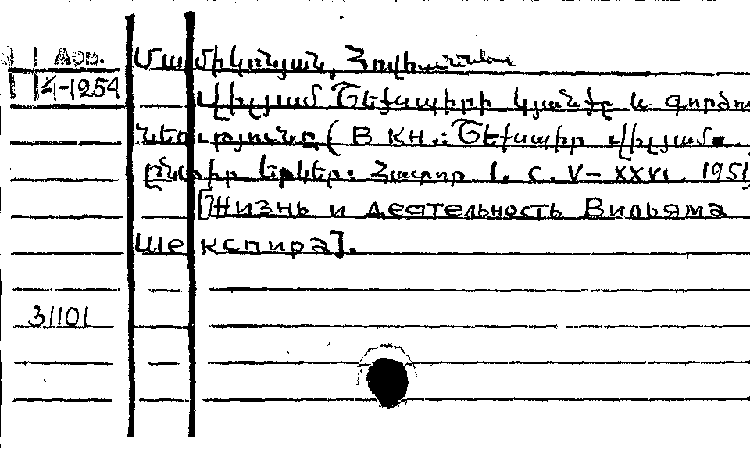 Арм.
4-1254
Մամիկոնյան, Հովհաննես
Վիլյամ Շեքսպիրի կյանքը և գործու
նեությունը (В кн.: Շեքսպիր Վիլյամ.
Ընտիր երկեր. Հատոր 1. с. V-XXVI. 1951
[Жизнь и деятельность Вильяма
Шекспира].
31101